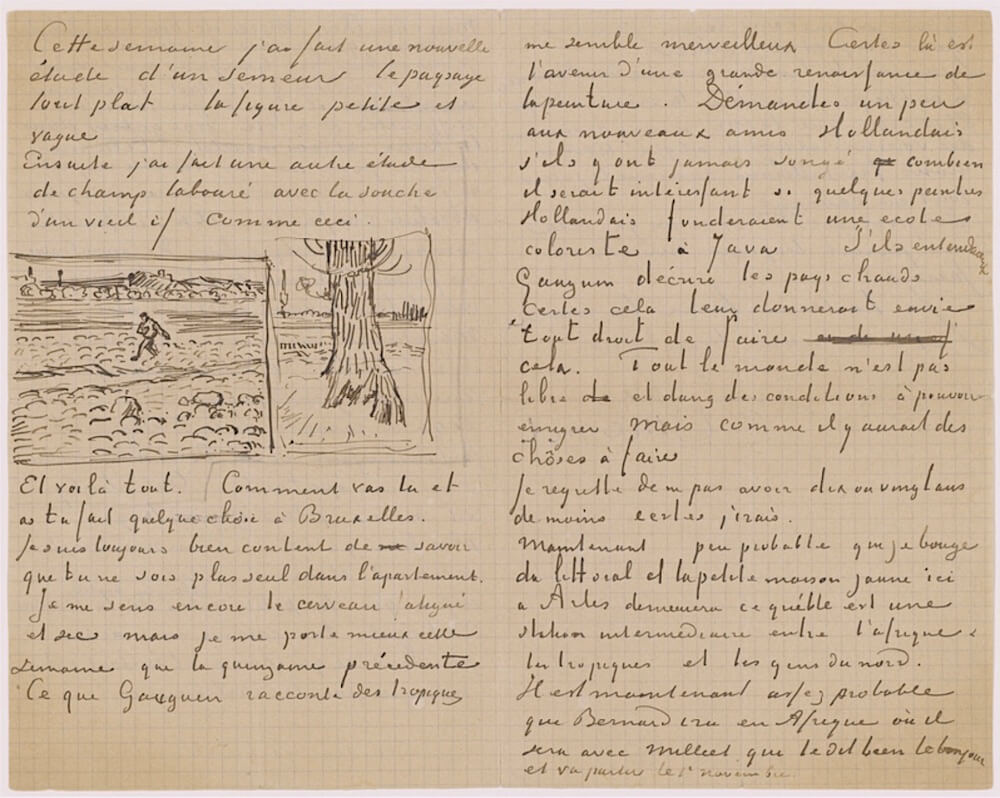 Cette semaine j'ai fait une nouvelle
étude d'un semeur le paysage
tout plat la figure petite et
vague
Ensuite j'ai fait une autre étude
de champ labouré avec la souche
d'un vieil if comme ceci.
Et voilà tout. Comment vas tu et
as tu fait quelque chose à Bruxelles.
Je suis toujours bien content de savoir
que tu ne sois plus seul dans l'appartement.
Je me sens encore le cerveau fatigué
et sec mais je me porte mieux cette
semaine que la quinzaine précédente
Ce que Gauguin raconte des tropiques
me semble merveilleux Certes là est
l'avenir d'une grande renaissance de
la peinture. Demandes un peu
aux nouveaux amis Hollandais
s'ils y ont jamais songé combien
il serait intéressant si quelques peintres
Hollandais fonderaient une école
coloriste à Java S'ils entendaient
Gauguin décrire les pays chauds
certes cela leur donnerait envie
tout droit de faire
cela. Tout le monde n'est pas
libre et dans des conditions à pouvoir
émigrer Mais comme il y aurait des
chôses à faire
Je regrette de ne pas avoir dix ou vingt ans
de moins certes j'irais.
Maintenant peu probable que je bouge
du littoral et la petite maison jaune ici
à Arles demeurera ce qu'elle est une
station intermédiaire entre l'afrique &
les tropiques et les gens du nord.
Il est maintenant assez probable
que Bernard ira en Afrique où il
sera avec Milliet que te dit bien le bonjour
et va partir le 1r novembre.